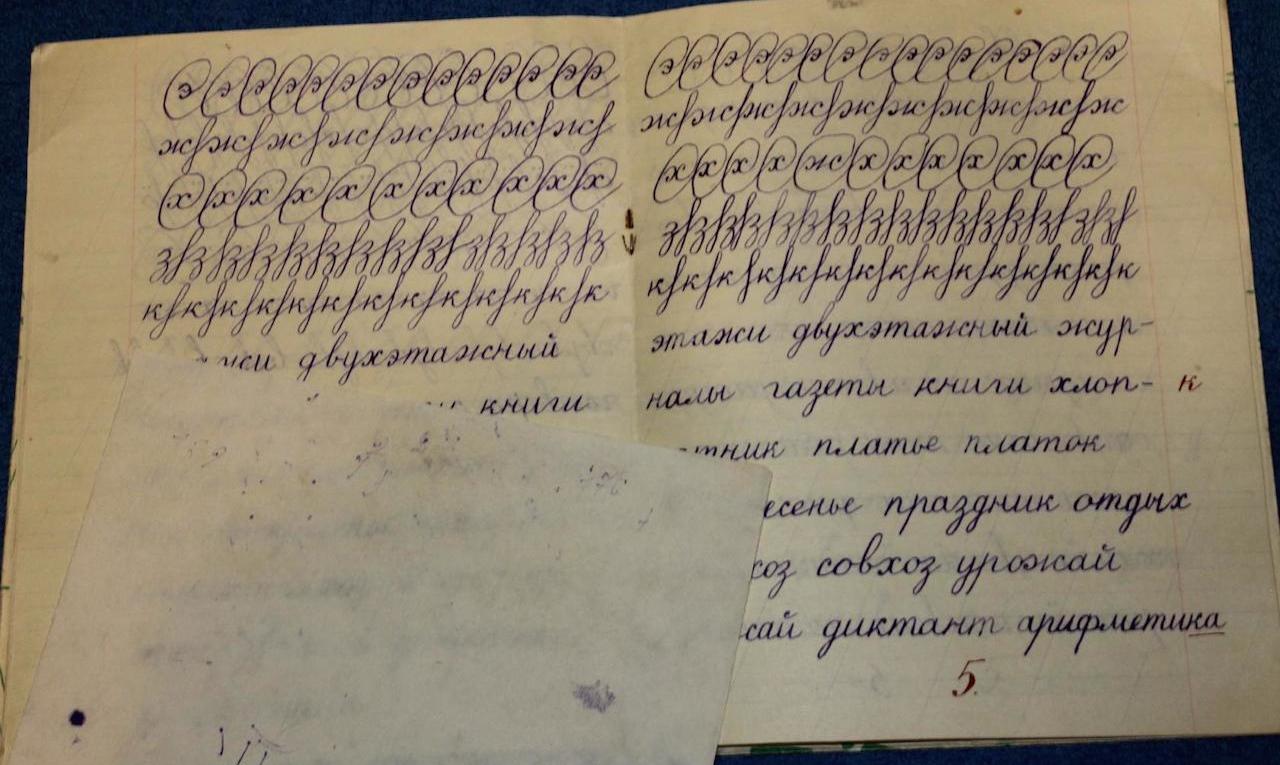 э э э э э э э э э э э э э
ж ж ж ж ж ж ж ж ж
х х х х х х х х х х х
з з з з з з з з з з з з з
к к к к к к к к к к к к
двухэтажный
книги
э э э э э э э э э э э э э э э
ж ж ж ж ж ж ж ж ж ж ж
х х х х ж х х х х х х х
з з з з з з з з з з з з з з
к к к к к к к к к к к к к
этажи двухэтажный жур-
налы газеты книги хлоп- к
тник платье платок
есенье праздник отдых
хоз совхоз урожай
сай диктант арифметика
5.